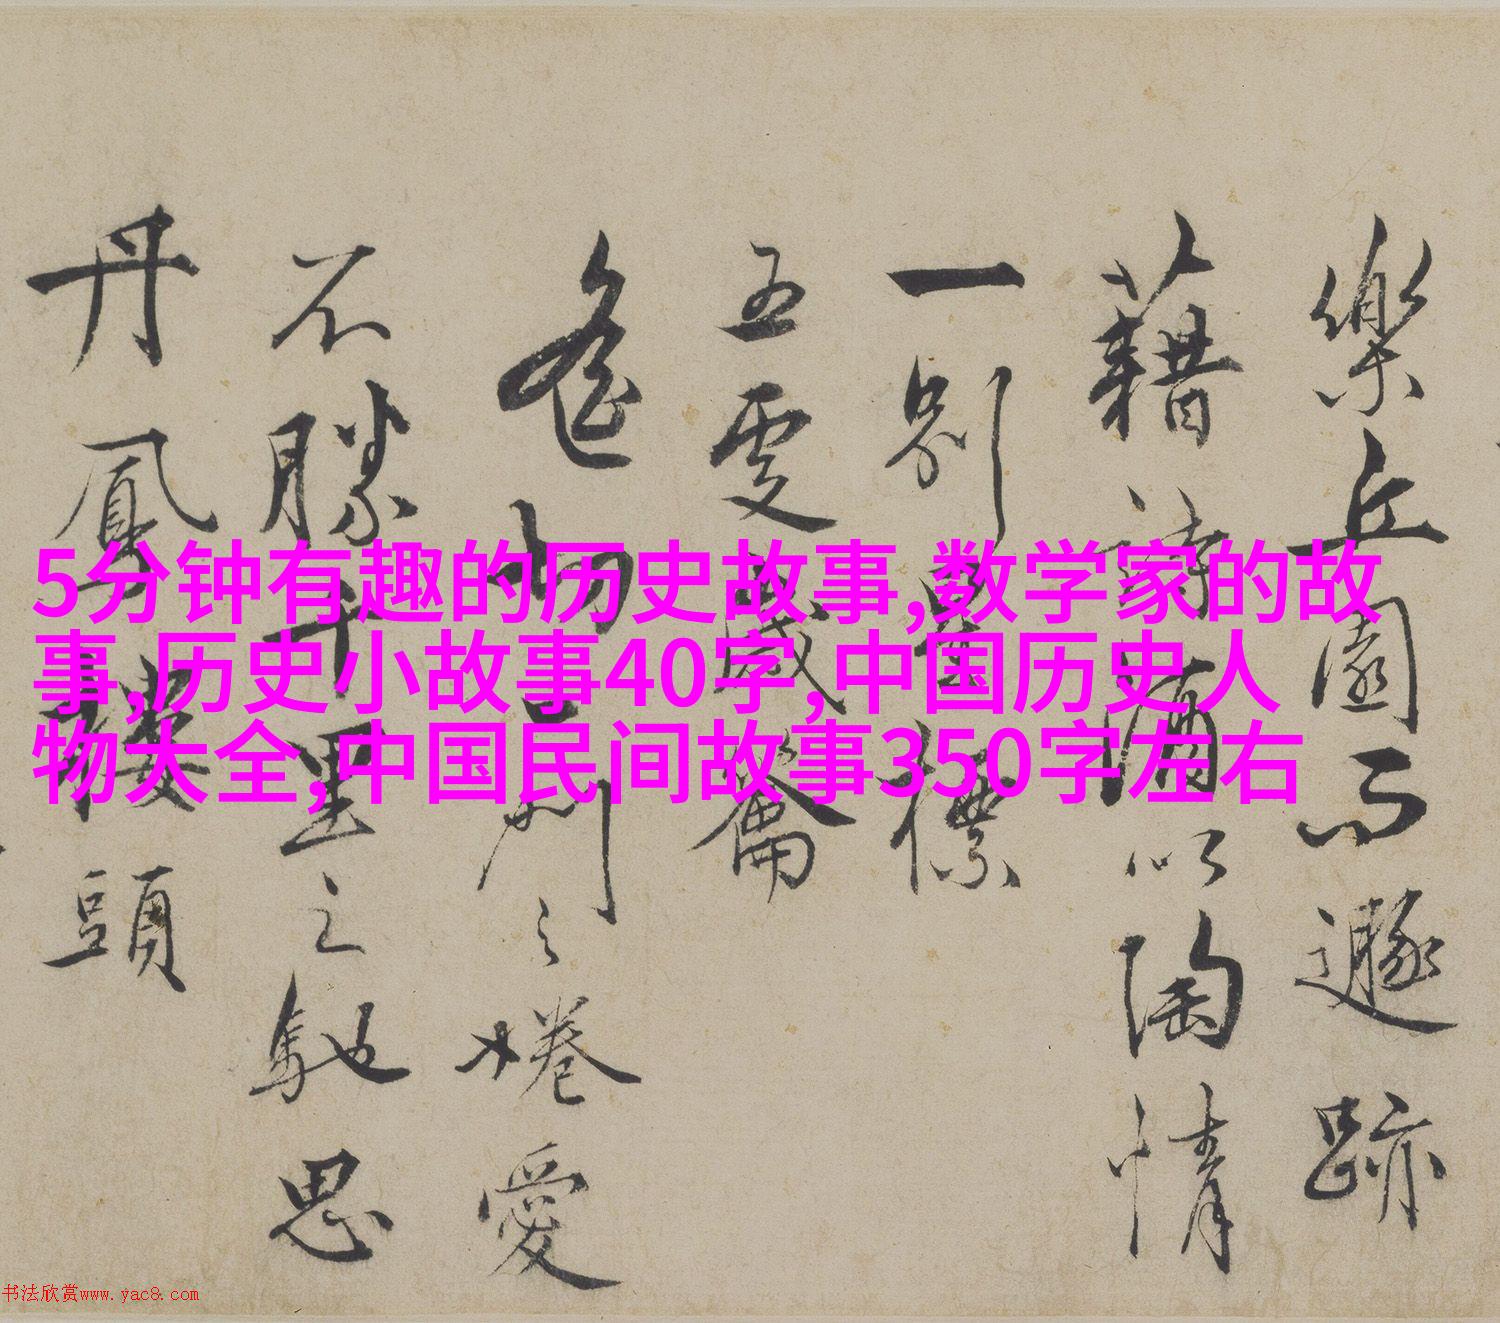 樂丘園而遯跡
藉詩酒以陶情
一别
五更歲籥
之惓愛
不勝千里之馳思
丹鳳樓頭
5分钟有趣的历史故事,数学家的故
事,历史小故事40字,中国历史人
物大全,中国民间故事350字左右
书法欣赏www.yac8.com